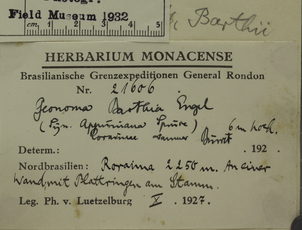 Field Museum 1932
cm
Barthii
HERBARIUM MONACENSE
Brasilianische Grenzexpeditionen General Rondon
Nr. 21606
Geonoma Barthia Engel
(Syn. Appuniana Spruce) 6 m hoch.
Burret
Determ.: 192 .
Nordbrasilien: Roraima 2250 m. An einer
Wand, mit Blattringen am Stamm.
Leg. Ph. v. Luetzelburg V. 1927.